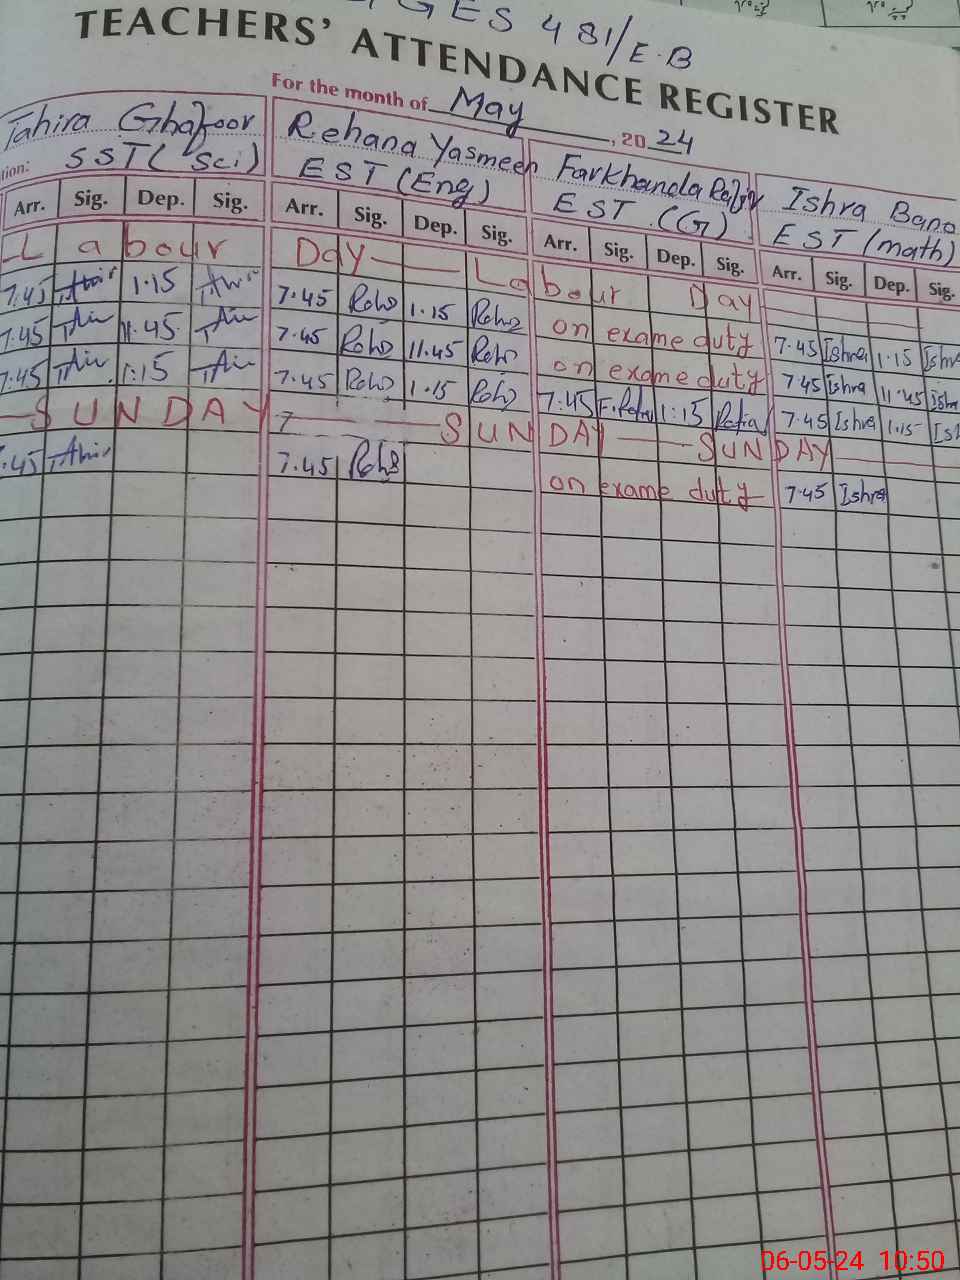 GES 481/E.B
TEACHERS' ATTENDANCE REGISTER
For the month of May, 2024
Tahira Ghafoor Rehana Yasmeen Farkhanda Ishra Bano
tion: SST (Sci) EST (Eng) EST (G) EST (math)
Arr. Sig. Dep. Sig. Arr. Sig. Dep. Sig. Arr. Sig. Dep. Sig. Arr. Sig. Dep. Sig.
Labour Day Labour Day
7.45 1.15 7.45 1.15 on exame duty 7.45 Ishra 1.15 Ishra
7.45 11.45 7.45 11.45 on exame duty 7.45 Ishra 11.45 Ishra
7.45 1:15 7.45 1.15 7:45 1:15 7.45 Ishra 1.15 Is
SUNDAY SUNDAY SUNDAY
.45 7.45 on exame duty 7.45 Ishra
06-05-24 10:50